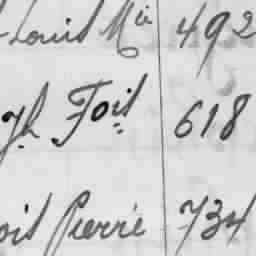 Louis Mie 492
Jh Fois 618
ois Pierre 734